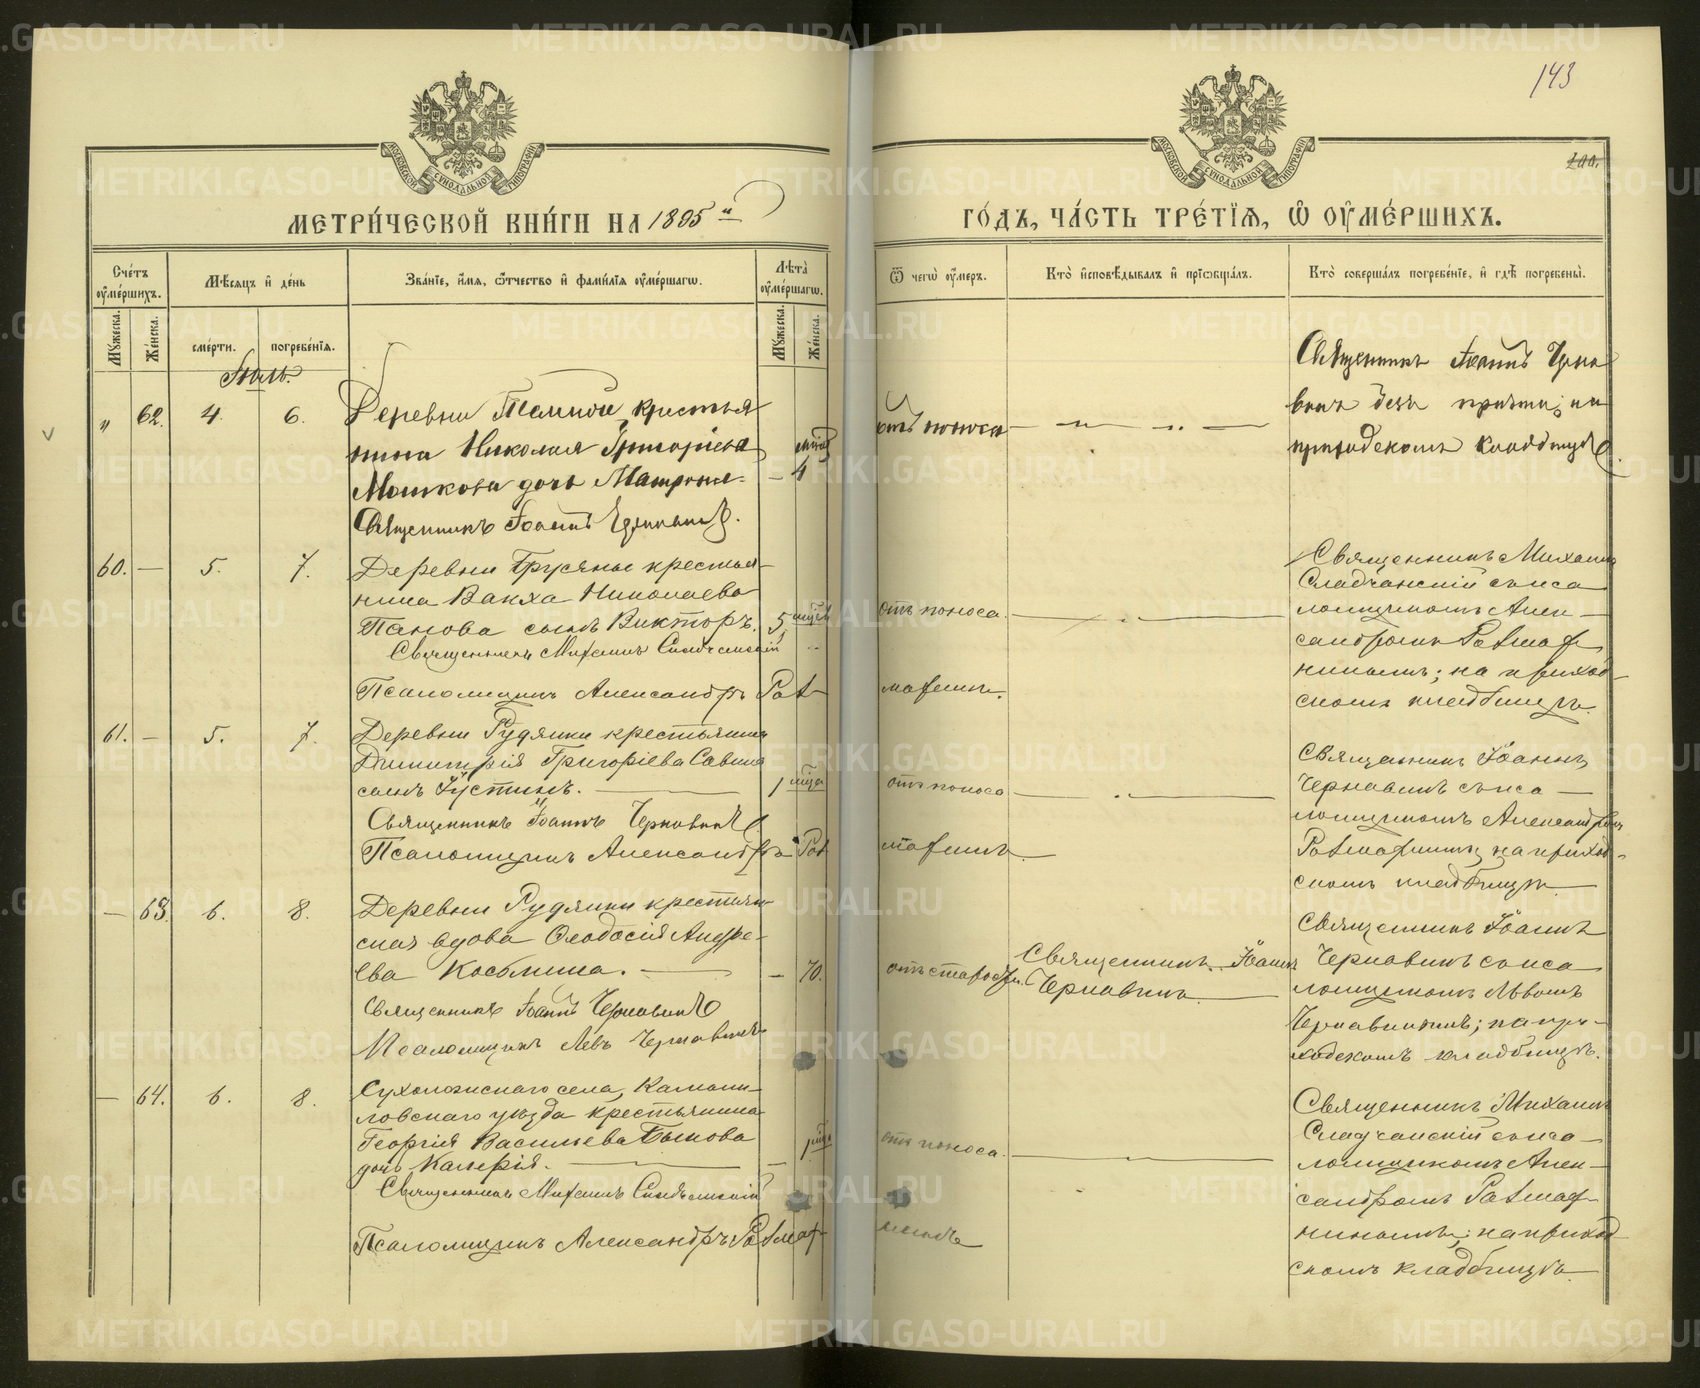 143
100.
МЕТРИ́ЧЕСКОЙ КНИ́ГИ НА 1895 й
ГО́ДЪ, ЧА́СТЬ ТРЕ́ТІѦ, Ѽ ОУ҆МЕ́РШИХЪ.
Сче́тъ оу҆ме́ршихъ.
Мѣ́сяцъ и҆ де́нь
Зва́нїе, и҆́мѧ, ѻ҆́тчество и҆ фами́лїѧ оу҆ме́ршагѡ.
Лѣ́та оу҆ме́ршагѡ.
Ѿ чегѡ̀ оу҆́меръ.
Кто̀ и҆сповѣ́дывалъ и҆ прїѡбща́лъ.
Кто̀ соверша́лъ погребе́нїе, и҆ гдѣ̀ погребены̀.
Мꙋ́жеска.
Же́нска.
сме́рти.
погребе́нїѧ.
Мꙋ́жеска.
Же́нска.
Іюль.
„ 62. 4. 6.
Деревни Темной крестья
нина Николая Григорьева
Мошкова дочь Матрона.
Священникъ Іоаннъ Чернавинъ.
мѣс
– 4
отъ поноса
Священникъ Іоаннъ Черна
винъ безъ причта; на
приходскомъ кладбищѣ
60. — 5. 7.
Деревни Брусяны крестья-
нина Вакха Николаева
Панова сынъ Викторъ.
Священникъ Михаилъ Сладчанскій
Псаломщикъ Александръ Рат
5 мѣсяц
отъ поноса.
Священникъ Михаилъ
Сладчанскій съ пса
ломщикомъ Алек-
сандромъ
нинымъ; на приход-
скомъ кладбищѣ.
61. — 5. 7.
Деревни Рудянки крестьянина
Димитрія Григоріева Савина
сынъ Іустинъ.
Священникъ Іоаннъ Чернавинъ
Псаломщикъ Александръ Рат
1 мѣсяц
отъ поноса
Священникъ Іоаннъ
Чернавинъ съ пса
ломщикомъ Александромъ
на приход-
скомъ кладбищѣ
— 63. 6. 8.
Деревни Рудянки крестьян-
ская вдова Ѳеодосія Андре-
ева Кособлина.
Священникъ Іоаннъ Чернавинъ
Псаломщикъ Левъ Чернавинъ
– 70.
отъ старости.
Священникъ Іоаннъ
Чернавинъ
Священникъ Іоаннъ
Чернавинъ съ пса
ломщикомъ Львомъ
Чернавинымъ; на при-
ходскомъ кладбищѣ.
— 64. 6. 8.
Сухоложскаго села, Камыш-
ловскаго уѣзда крестьянина
Георгія Васильева Быкова
дочь Калерія.
Священникъ Михаилъ Сладчанскій
Псаломщикъ Александръ
– 1 мѣс
отъ поноса.
Священникъ Михаилъ
Сладчанскій съ пса-
ломщикомъ Алек-
сандромъ
нинымъ; на приход
скомъ кладбищѣ.